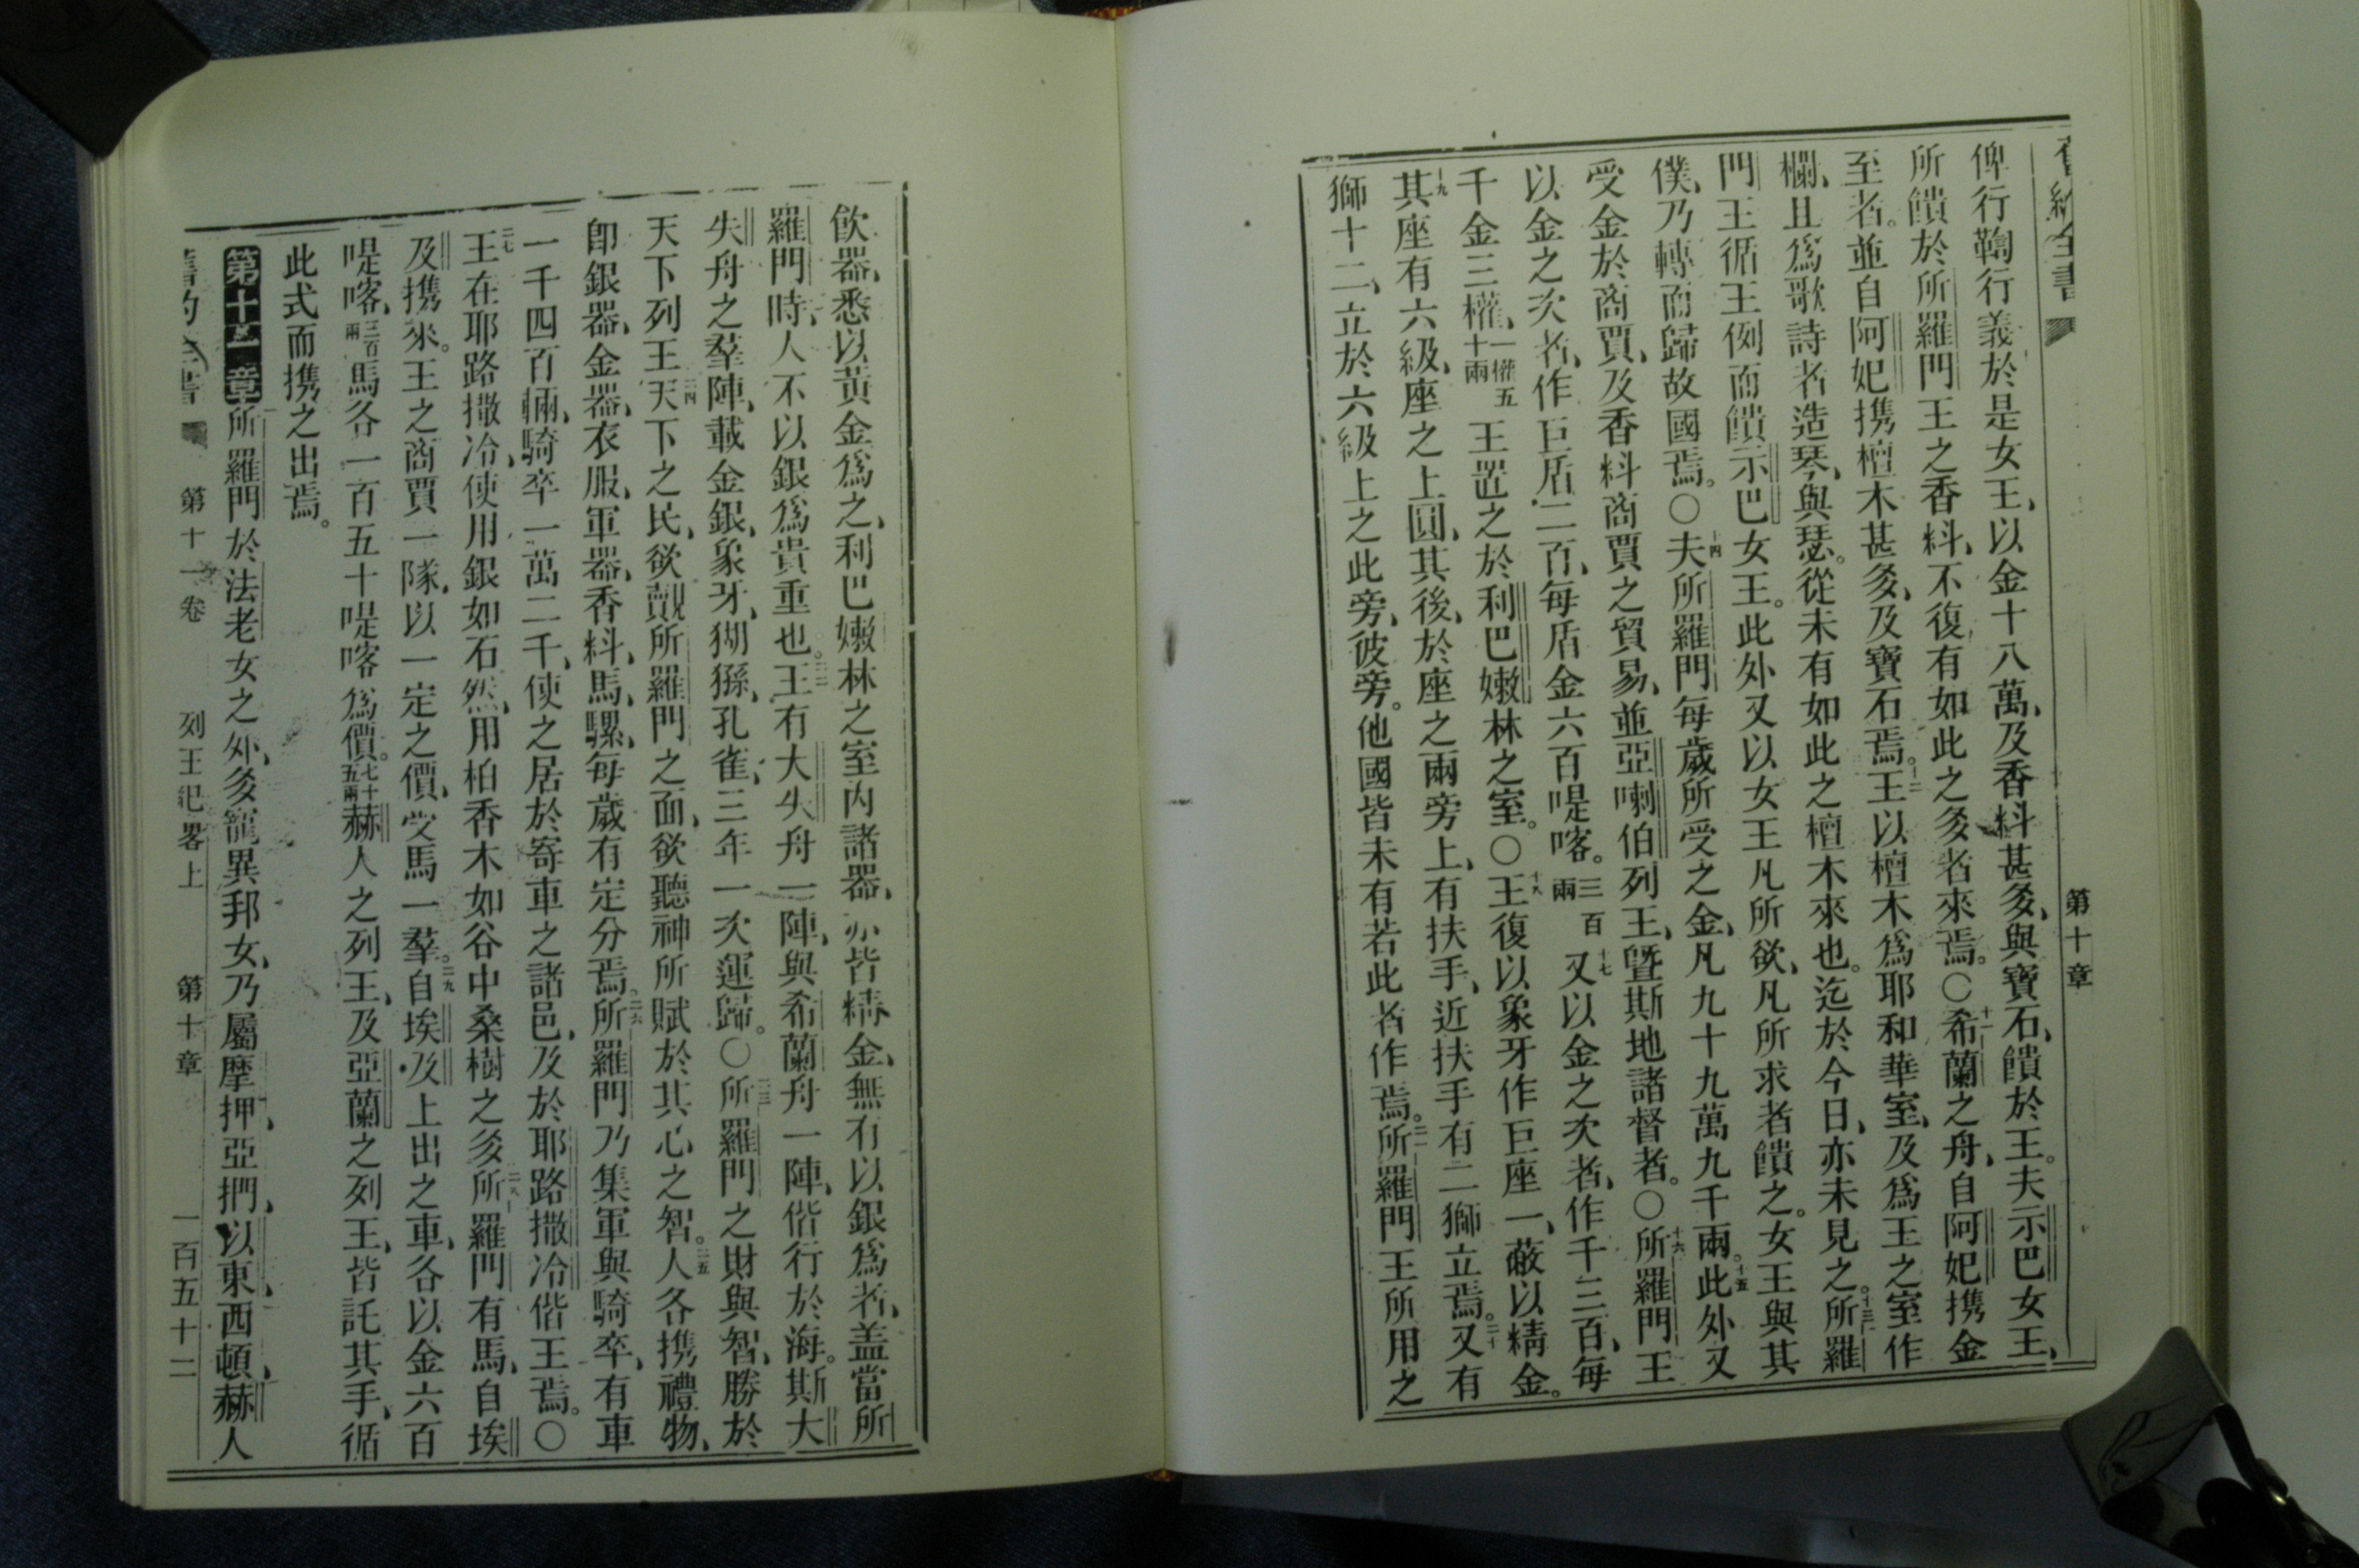 舊約全書 第十章
俾行鞫行義於是女王、以金十八萬、及香料甚多、與寶石、饋於王。夫示巴女王、
所饋於所羅門王之香料、不復有如此之多者來焉。○十一希蘭之舟、自阿妃携金
至者。並自阿妃携檀木甚多、及寶石焉。十二王以檀木爲耶和華室、及爲王之室作
欄、且爲歌詩者造琴、與瑟。從未有如此之檀木來也。迄於今日、亦未見之。十三所羅
門王循王例而饋示巴女王。此外又以女王凡所欲、凡所求者饋之。女王與其
僕、乃轉而歸故國焉。○十四夫所羅門每歲所受之金、凡九十九萬九千兩。十五此外又
受金於商賈、及香料商賈之貿易、並亞喇伯列王、曁斯地諸督者。○十六所羅門王
以金之次者、作巨盾二百、每盾金六百嗁喀。三百兩十七又以金之次者、作千三百、每
千金三權、一權五十兩王置之於利巴嫩林之室。○十八王復以象牙作巨座一、蔽以精金。
十九其座有六級、座之上圓、其後、於座之兩旁上、有扶手、近扶手有二獅立焉。二十又有
獅十二、立於六級上之此旁、彼旁。他國皆未有若此者作焉。二一所羅門王所用之
飲器、悉以黃金爲之、利巴嫩林之室內諸器、亦皆精金、無有以銀爲者、盖當所
羅門時、人不以銀爲貴重也。二二王有大失舟一陣、與希蘭舟一陣、偕行於海。斯大
失舟之羣陣、載金銀、象牙、猢猻、孔雀、三年一次運歸。○二三所羅門之財與智、勝於
天下列王。二四天下之民、欲覿所羅門之面、欲聽神所賦於其心之智。二五人各携禮物、
卽銀器、金器、衣服、軍器、香料、馬、騾、每歲有定分焉。二六所羅門乃集軍與騎卒、有車
一千四百輛、騎卒一萬二千、使之居於寄車之諸邑、及於耶路撒冷偕王焉。○
二七王在耶路撒冷、使用銀如石然、用柏香木如谷中桑樹之多。二八所羅門有馬、自埃
及携來。王之商賈一隊、以一定之價、受馬一羣。二九自埃及上出之車、各以金六百
嗁喀、三百兩馬各一百五十嗁喀爲價。七十五兩赫人之列王、及亞蘭之列王、皆託其手、循
此式而携之出焉。
第十一章所羅門於法老女之外、多寵異邦女、乃屬摩押、亞捫、以東、西頓、赫人
舊約全書 第十一卷 列王紀畧上 第十章 一百五十二